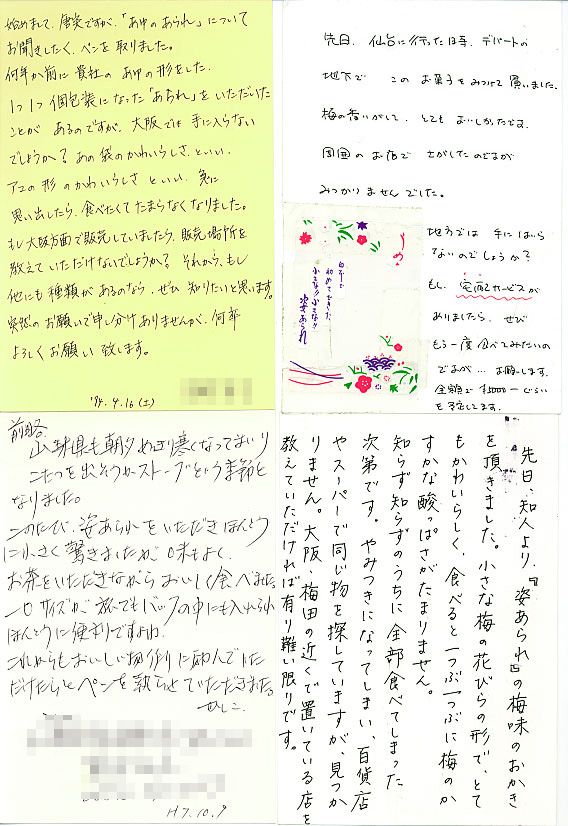 始めまして、唐突ですが、「あゆのあられ」について
お聞きしたく、ペンを取りました。
何年か前に貴社の あゆの形をした、
1つ1つ個包装になった「あられ」をいただいた
ことが あるのですが、大阪では 手に入らない
でしょうか? あの袋のかわいらしさといい、
アユの形のかわいらしさ といい、急に
思い出したら、食べたくてたまらなくなりました。
もし大阪方面で販売していましたら、販売場所を
教えていただけないでしょうか? それから、もし
他にも種類があるのなら、ぜひ 知りたいと思います。
突然のお願いで申し分けありませんが、何卒
よろしくお願い致します。
'94.9.16(土)
先日、仙台に行った時、デパートの
地下で このお菓子をみつけて買いました。
梅の香いがして、とてもおいしかったです。
周囲のお店で さがしたのですが
みつかりませんでした。
うめ
日本で
初めてできた
小さな小さな
姿あられ
地方では 手にはいら
ないのでしょうか?
もし、宅配サービスが
ありましたら、ぜひ
もう一度食べてみたいの
ですが… お願いします。
金額で ¥5000-ぐらい
を予定してます。
前略
山形県も朝夕めっきり寒くなってまいり
こたつを出そうかストーブという季節と
なりました。
このたび、姿あられをいただきほんとう
に小さく驚きましたが味もよく、
お茶をいただきながらおいしく食べました。
一口サイズが旅でもバックの中にも入れられ
ほんとうに便利ですね。
これからもおいしい物作りに励んでいた
だけたらとペンを執らせていただきました。
かしこ
H7.10.9
先日、知人より、『姿あられ』の梅味のおかき
を頂きました。小さな梅の花びらの形で、とて
もかわいらしく、食べると一つぶ一つぶに梅のか
すかな酸っぱさがたまりません。
知らず知らずのうちに全部食べてしまった
次第です。やみつきになってしまい、百貨店
やスーパーで同じ物を探していますが、見つか
りません。大阪・梅田の近くで置いている店を
教えていただければ有り難い限りです。